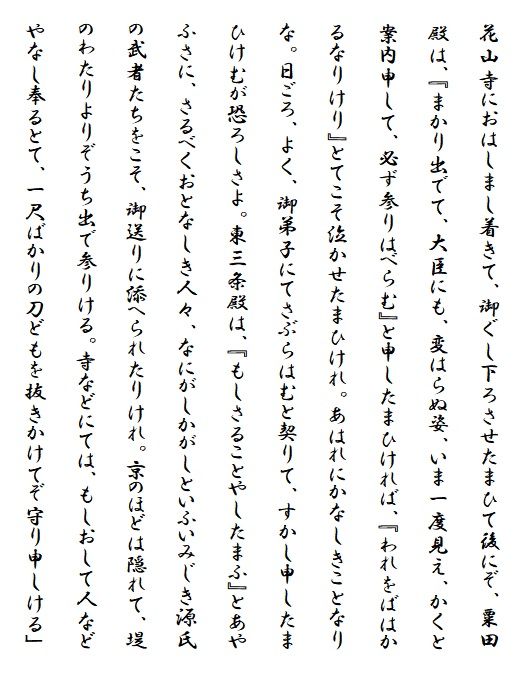 花山寺におはしまし着きて、御ぐし下ろさせたまひて後にぞ、粟田
殿は、『まかり出でて、大臣にも、変はらぬ姿、いま一度見え、かくと
案内申して、必ず参りはべらむ』と申したまひければ、『われをばはか
るなりけり』とてこそ泣かせたまひけれ。あはれにかなしきことなり
な。日ごろ、よく、御弟子にてさぶらはむと契りて、すかし申したま
ひけむが恐ろしさよ。東三条殿は、『もしさることやしたまふ』とあや
ふさに、さるべくおとなしき人々、なにがしかがしといふいみじき源氏
の武者たちをこそ、御送りに添へられたりけれ。京のほどは隠れて、堤
のわたりよりぞうち出で参りける。寺などにては、もしおして人など
やなし奉るとて、一尺ばかりの刀どもを抜きかけてぞ守り申しける」